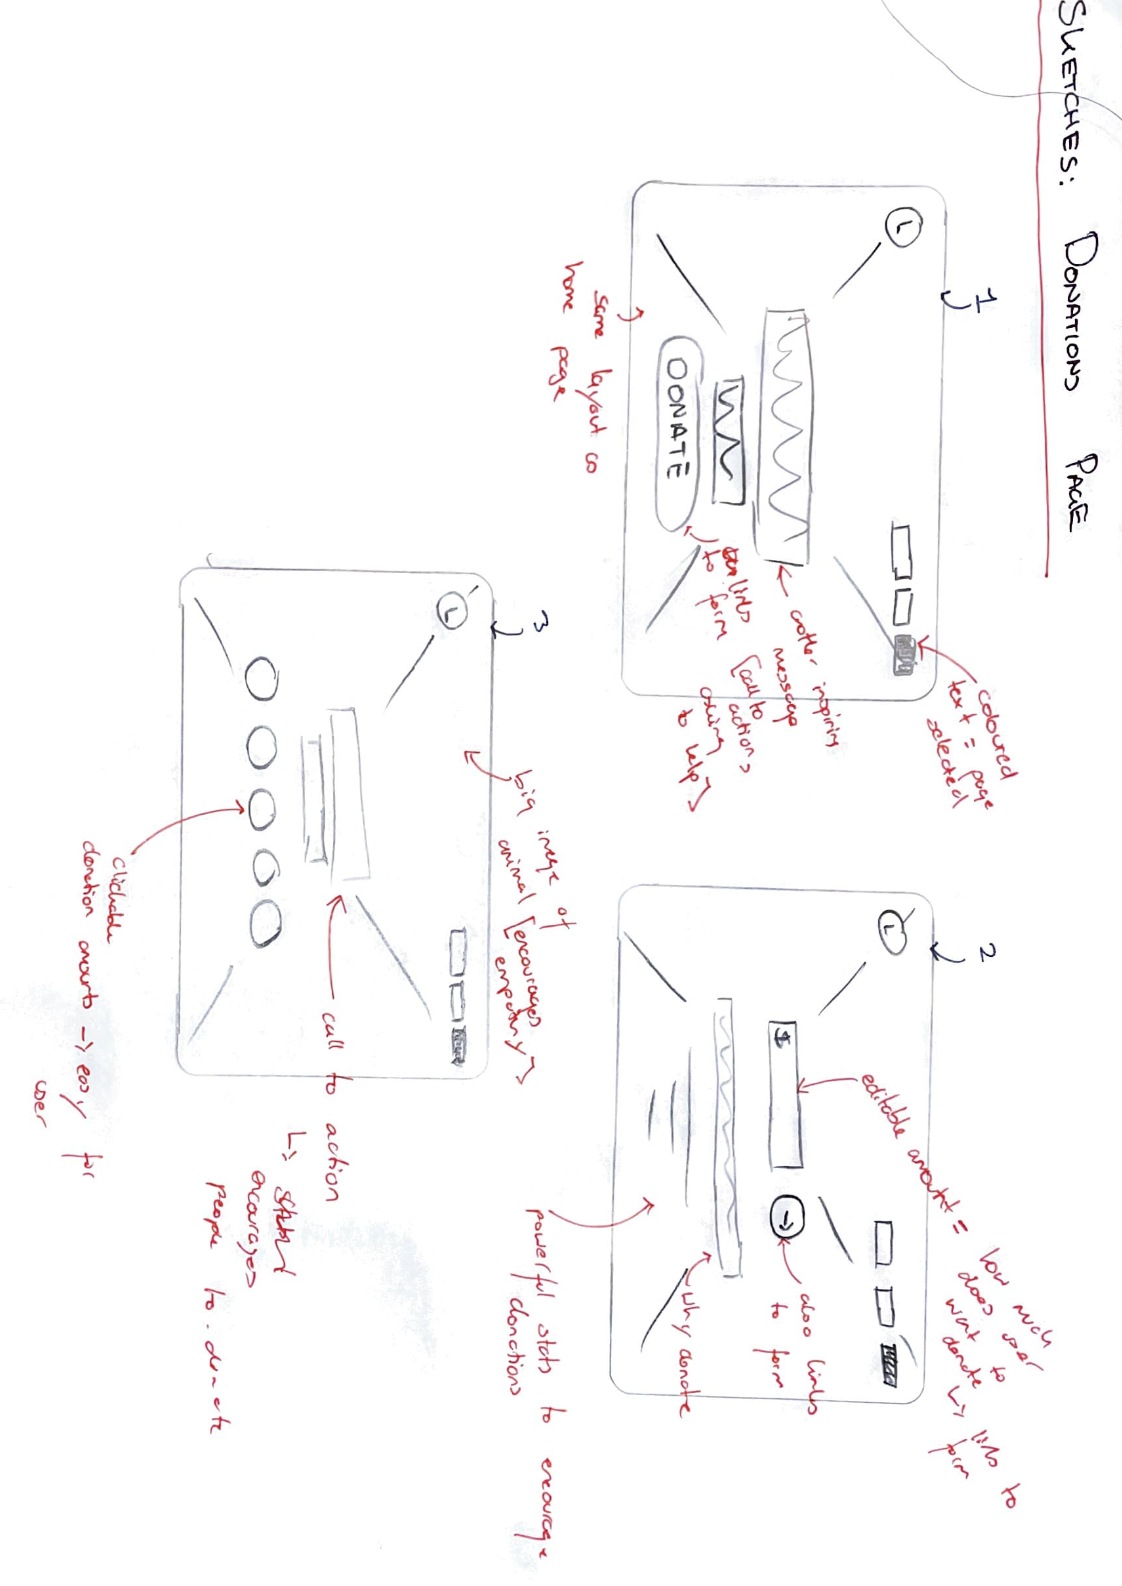 SKETCHES: DONATIONS PAGE
1
L
coloured
text = page
selected
another inspiring
message
DONATE
links
to form [call to
action,
asking
to help]
same layout as
home page
2
L
$
editable amount = how much
does user
want to
donate ↳ links to
form
→
also links
to form
why donate
powerful stats to encourage
donations
3
L
big image of
animal [encourages
empathy]
call to action
↳
encourages
people to donate
clickable
donation amounts → easy for
user